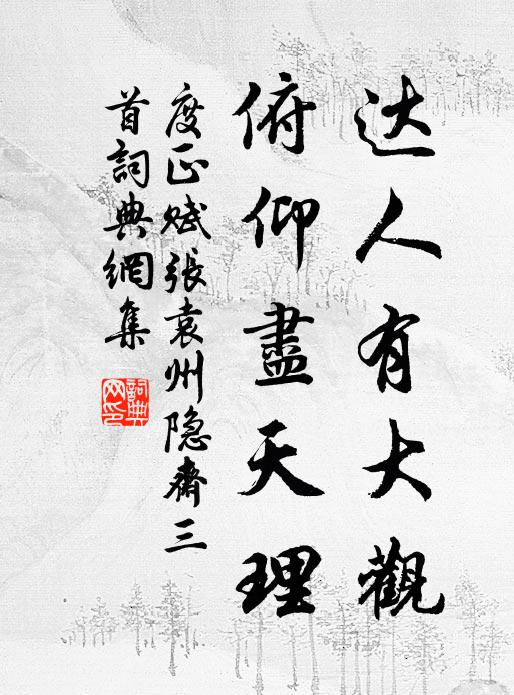 达人有大觀
俯仰盡天理
度正赋張袁州隐齋三
首詞典網集
詞典网印